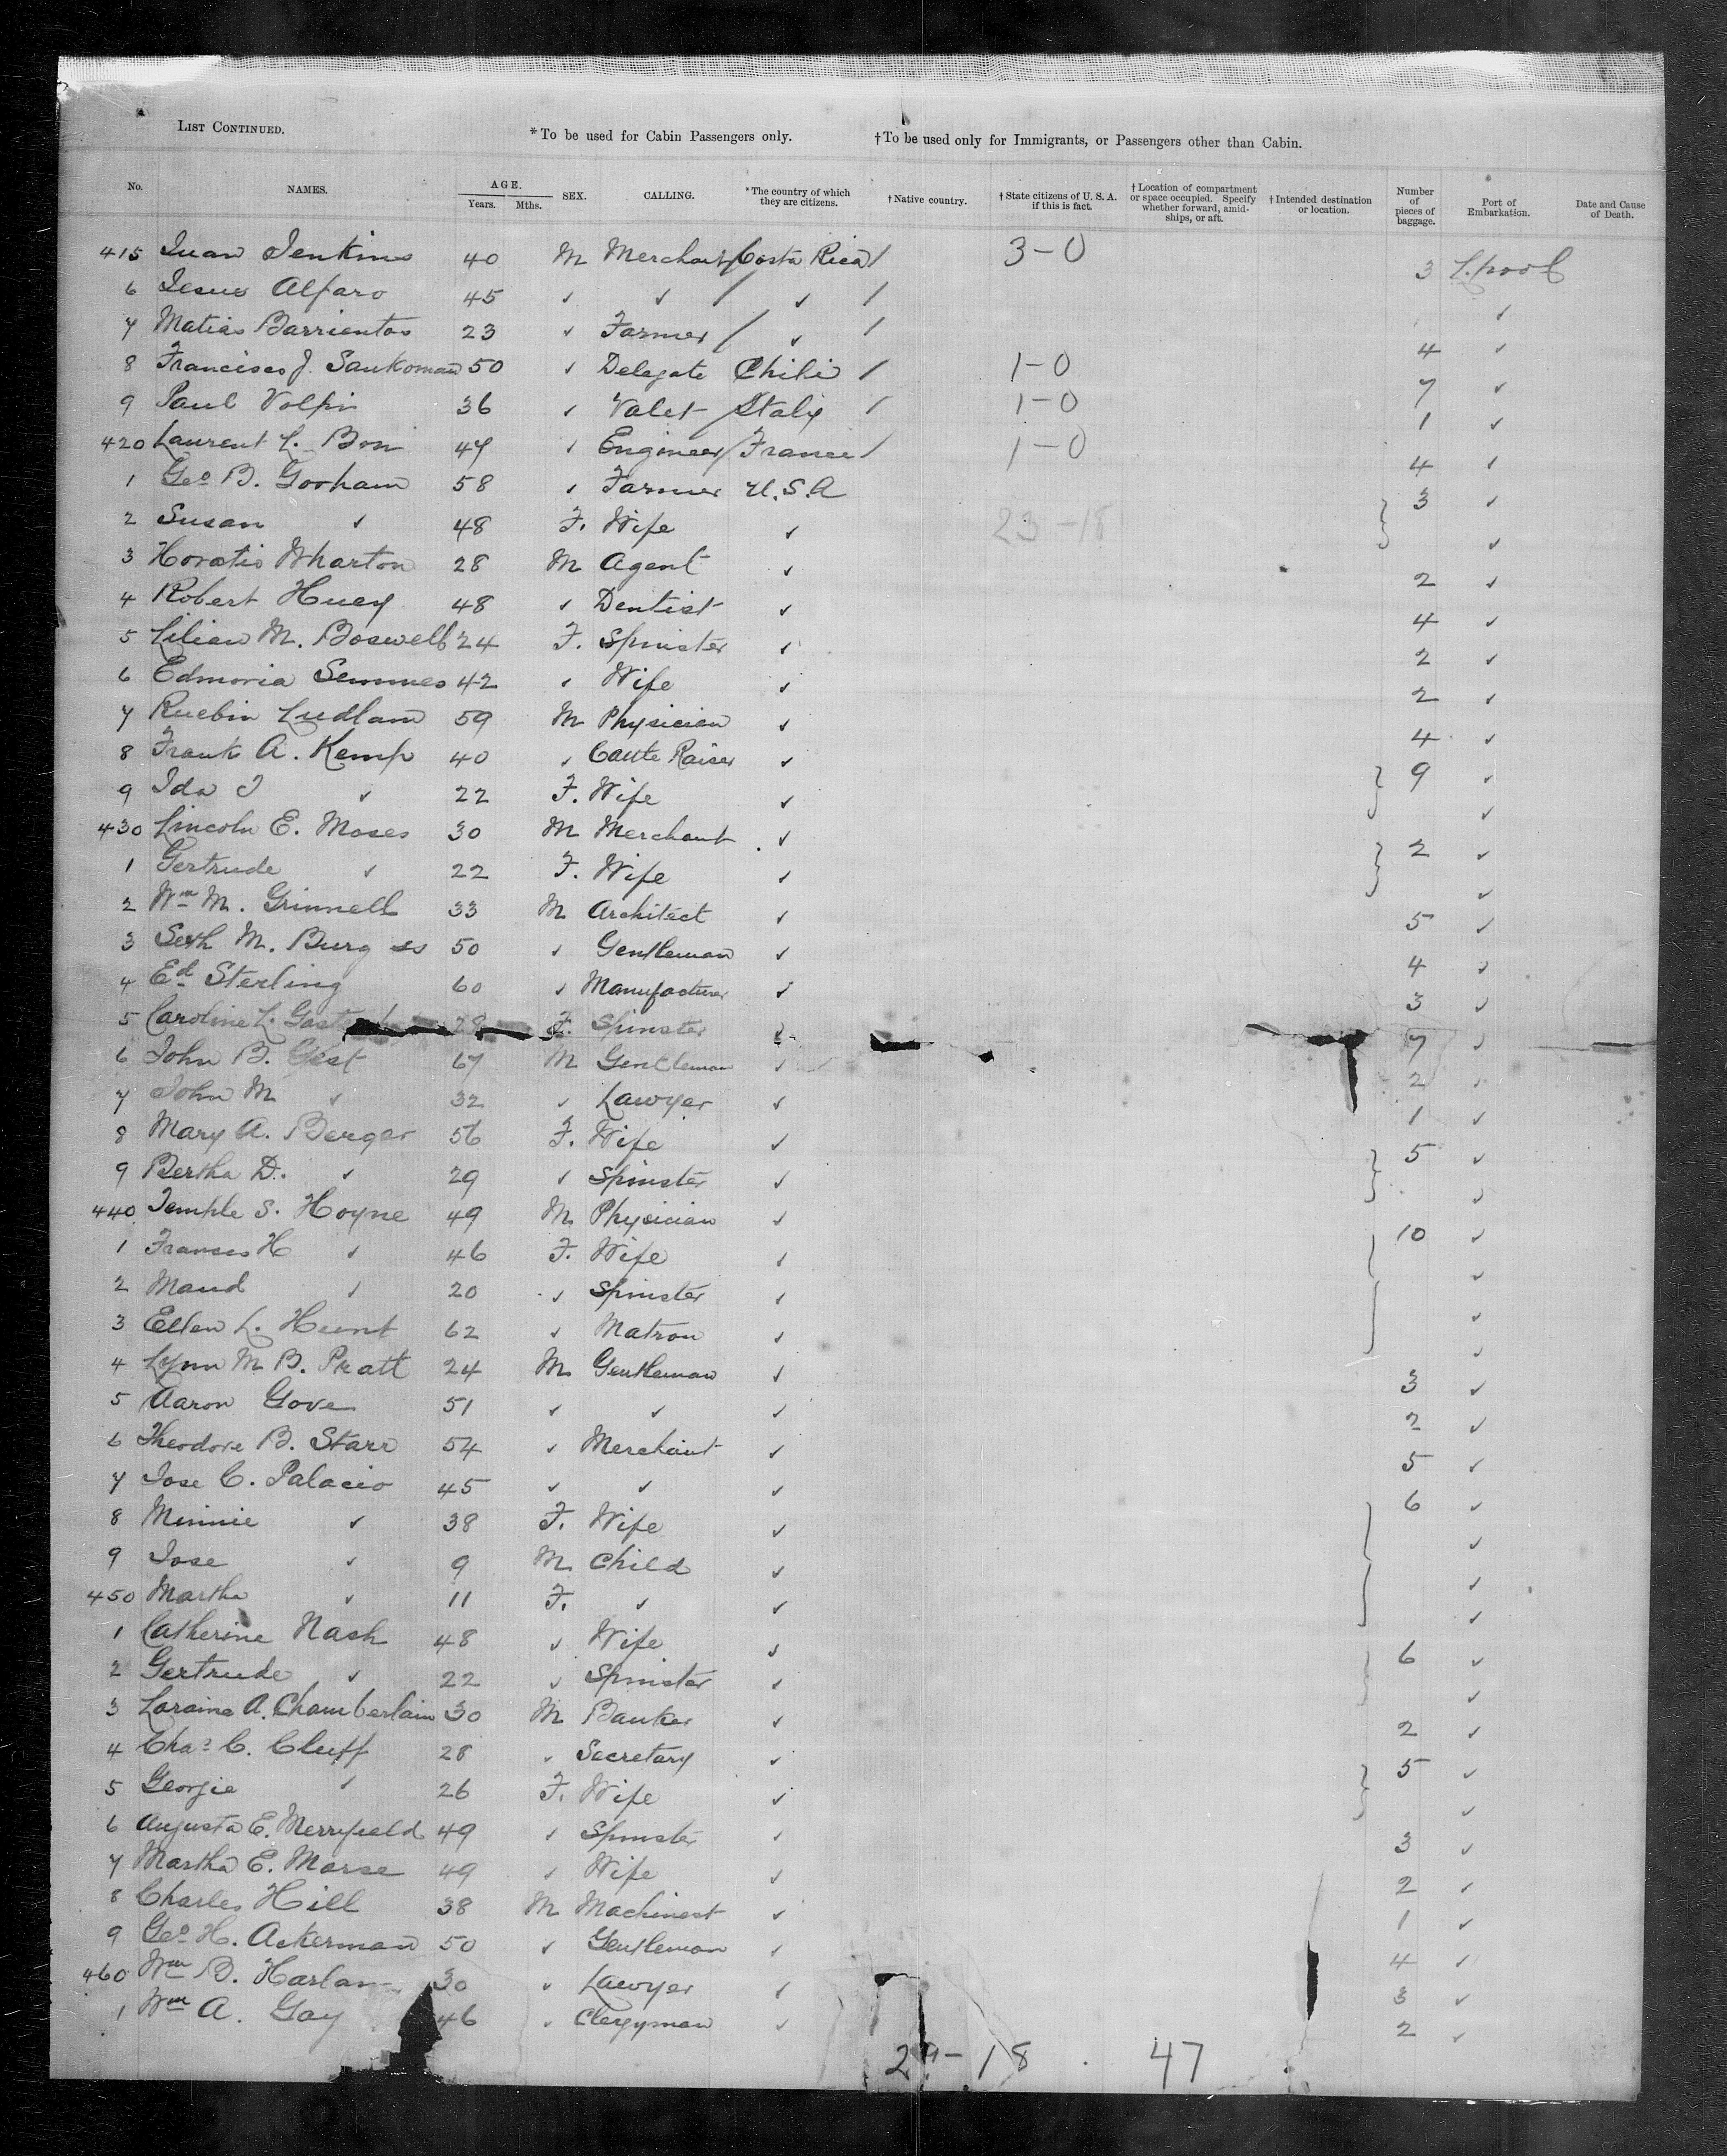 LIST CONTINUED. * To be used for Cabin Passengers only. † To be used only for Immigrants, or Passengers other than Cabin.
No. NAMES. AGE. Years. Mths. SEX. CALLING. * The country of which they are citizens. † Native country. † State citizens of U. S. A. if this is fact. † Location of compartment or space occupied. Specify whether forward, amidships, or aft. † Intended destination or location. Number of pieces of baggage. Port of Embarkation. Date and Cause of Death.
415 Juan Jenkins 40 M Merchant Costa Rica / 3-0 3 L.pool
6 Jesus Alfaro 45 ✓ ✓ / ✓ / ✓
7 Matias Barrientos 23 ✓ Farmer / ✓ / 4 ✓
8 Francisco J. 50 ✓ Delegate Chili / 1-0 7 ✓
9 Paul Volpin 36 ✓ Valet / Italy / 1-0 1 ✓
420 Laurent L. Bon 47 ✓ Engineer / France / 1-0 4 ✓
1 Geo B. Gorham 58 ✓ Farmer U.S.A } 3 ✓
2 Susan ✓ 48 F. Wife ✓ 23-18 ✓
3 Horatio Wharton 28 M Agent ✓ 2 ✓
4 Robert Huey 48 ✓ Dentist ✓ 4 ✓
5 Lilian M. Boswell 24 F. Spinster ✓ 2 ✓
6 Edmonia Semmes 42 ✓ Wife ✓ 2 ✓
7 Ruebin Ludlam 59 M Physician ✓ 4 ✓
8 Frank A. Kemp 40 ✓ Cattle Raiser ✓ } 9 ✓
9 Ida J ✓ 22 F. Wife ✓ ✓
430 Lincoln E. Moses 30 M Merchant ✓ } 2 ✓
1 Gertrude ✓ 22 F. Wife ✓ ✓
2 Wm M. Grinnell 33 M Architect ✓ 5 ✓
3 Seth M. Burg ss 50 ✓ Gentleman ✓ 4 ✓
4 Ed Sterling 60 ✓ Manufacturer ✓ 3 ✓
5 Caroline L. 28 F. Spinster ✓ 7 ✓
6 John B. Gest 67 M Gentleman ✓ 2 ✓
7 John M ✓ 32 ✓ Lawyer ✓ 1 ✓
8 Mary A. Berger 56 F. Wife ✓ } 5 ✓
9 Bertha D. ✓ 29 ✓ Spinster ✓ ✓
440 Temple S. Hoyne 49 M Physician ✓ } 10 ✓
1 Frances H ✓ 46 F. Wife ✓ ✓
2 Maud ✓ 20 ✓ Spinster ✓ ✓
3 Ellen L. Hunt 62 ✓ Matron ✓ ✓
4 Lynn M B. Pratt 24 M Gentleman ✓ 3 ✓
5 Aaron Gove 51 ✓ ✓ ✓ 2 ✓
6 Theodore B. Starr 54 ✓ Merchant ✓ 5 ✓
7 Jose C. Palacio 45 ✓ ✓ ✓ } 6 ✓
8 Minnie ✓ 38 F. Wife ✓ ✓
9 Jose ✓ 9 M Child ✓ ✓
450 Martha ✓ 11 F. ✓ ✓ ✓
1 Catherine Nash 48 ✓ Wife ✓ } 6 ✓
2 Gertrude ✓ 22 ✓ Spinster ✓ ✓
3 Loraine A. Chamberlain 30 M Banker ✓ 2 ✓
4 Chas C. Cluff 28 ✓ Secretary ✓ } 5 ✓
5 Georgie ✓ 26 F. Wife ✓ ✓
6 Augusta E. Merryfield 49 ✓ Spinster ✓ 3 ✓
7 Martha E. Morse 49 ✓ Wife ✓ 2 ✓
8 Charles Hill 38 M Machinest ✓ 1 ✓
9 Geo H. Ackerman 50 ✓ Gentleman ✓ 4 ✓
460 Wm B. Harlan 30 ✓ Lawyer ✓ 3 ✓
1 Wm A. Gay 46 ✓ Clergyman ✓ 2 ✓
29-18 47